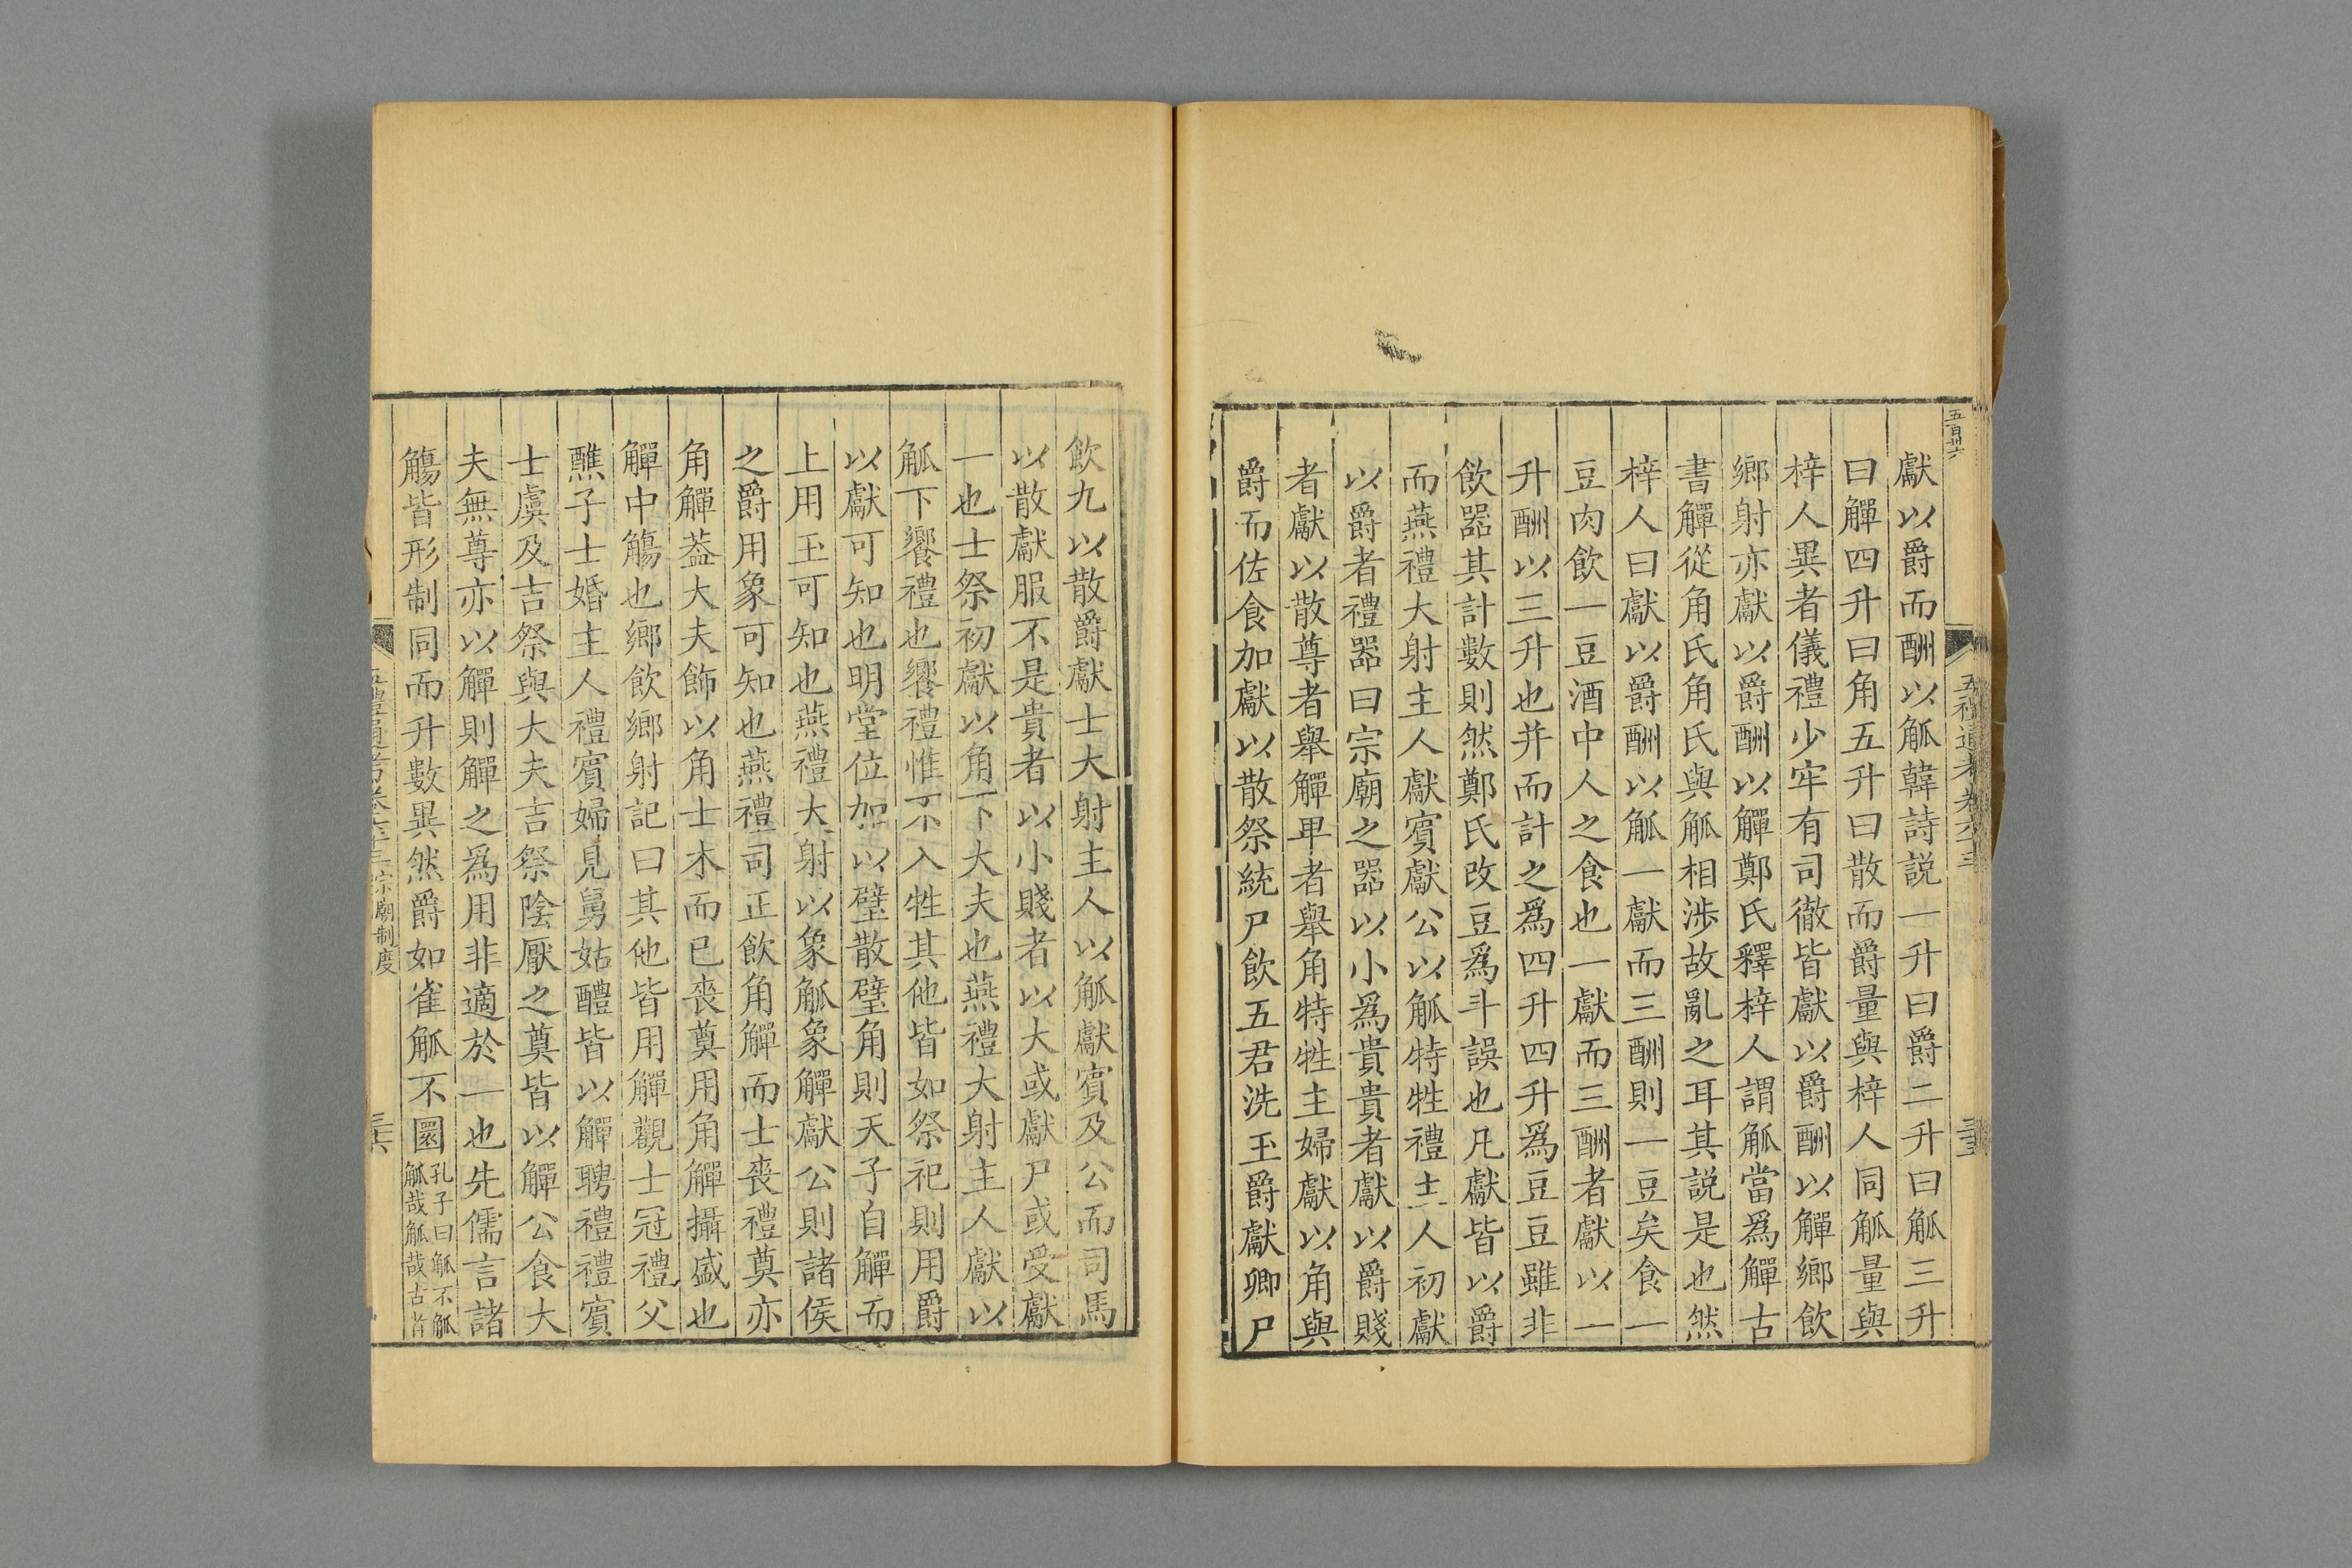 五百卅六
五禮通考卷六十三
獻以爵而酬以觚韓詩説一升曰爵二升曰觚三升
曰觶四升曰角五升曰散而爵量與梓人同觚量與
梓人異者儀禮少牢有司徹皆獻以爵酬以觶鄉飲
鄉射亦獻以爵酬以觶鄭氏釋梓人謂觚當爲觶古
書觶從角氏角氏與觚相渉故亂之耳其説是也然
梓人曰獻以爵酬以觚一獻而三酬則一豆矣食一
豆肉飲一豆酒中人之食也一獻而三酬者獻以一
升酬以三升也并而計之爲四升四升爲豆豆雖非
飲噐其計數則然鄭氏改豆爲斗誤也凡獻皆以爵
而燕禮大射主人獻賓獻公以觚特牲禮士人初獻
以爵者禮噐曰宗廟之噐以小爲貴貴者獻以爵賤
者獻以散尊者舉觶卑者舉角特牲主婦獻以角與
爵而佐食加獻以散祭統尸飲五君洗玉爵獻卿尸
飲九以散爵獻士大射主人以觚獻賓及公而司馬
以散獻服不是貴者以小賤者以大或獻尸或受獻
一也士祭初獻以角下大夫也燕禮大射主人獻以
觚下饗禮也饗禮惟不入牲其他皆如祭祀則用爵
以獻可知也明堂位加以璧散璧角則天子自觶而
上用玉可知也燕禮大射以象觚象觶獻公則諸侯
之爵用象可知也燕禮司正飲角觶而士喪禮奠亦
角觶葢大夫飾以角士木而已喪奠用角觶攝盛也
觶中觴也鄉飲鄉射記曰其他皆用觶觀士冠禮父
醮子士婚主人禮賓婦見舅姑醴皆以觶聘禮禮賓
士虞及吉祭與大夫吉祭陰厭之奠皆以觶公食大
夫無尊亦以觶則觶之爲用非適於一也先儒言諸
觴皆形制同而升數異然爵如雀觚不圜孔子曰觚不觚
觚哉觚哉古者
宗廟制度